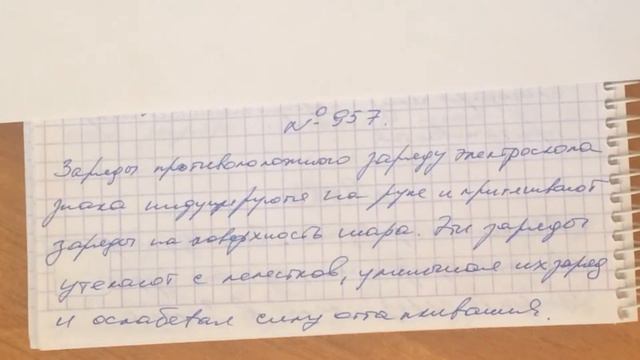 № 957.
Заряды противоположного заряду электроскопа
знака индуцируются на руке и притягивают
заряды на поверхность шара. Эти заряды
утекают с лепестков, уменьшая их заряд
и ослабевая силу отталкивания.